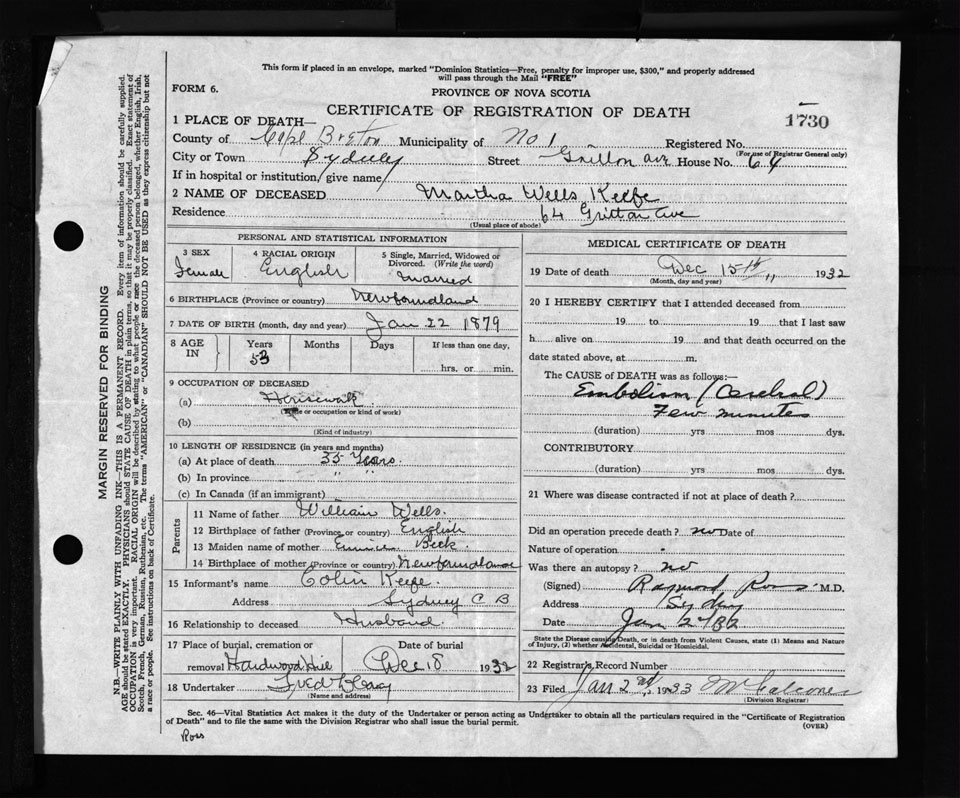 This form if placed in an envelope, marked "Dominion Statistics—Free, penalty for improper use, $300," and properly addressed
will pass through the Mail "FREE"
FORM 6.
PROVINCE OF NOVA SCOTIA
CERTIFICATE OF REGISTRATION OF DEATH
1730
1 PLACE OF DEATH—
County of Cape Breton Municipality of No 1 Registered No.
(For use of Registrar General only)
City or Town Sydney Street House No. 64
If in hospital or institution, give name
2 NAME OF DECEASED Martha Wells Keefe
Residence 64 Ave
(Usual place of abode)
PERSONAL AND STATISTICAL INFORMATION
3 SEX Female
4 RACIAL ORIGIN English
5 Single, Married, Widowed or Divorced. (Write the word) Married
6 BIRTHPLACE (Province or country) Newfoundland
7 DATE OF BIRTH (month, day and year) Jan 22 1879
8 AGE IN Years Months Days If less than one day,
53 hrs. or min.
9 OCCUPATION OF DECEASED
(a) Housewife
(Trade or occupation or kind of work)
(b)
(Kind of industry)
10 LENGTH OF RESIDENCE (in years and months)
(a) At place of death 35 Years
(b) In province " "
(c) In Canada (if an immigrant)
Parents
11 Name of father William Wells
12 Birthplace of father (Province or country) English
13 Maiden name of mother Beck
14 Birthplace of mother (Province or country) Newfoundland
15 Informant's name Colin Keefe
Address Sydney C B
16 Relationship to deceased Husband
17 Place of burial, cremation or removal Hardwood Hill
Date of burial Dec 18 1932
18 Undertaker
(Name and address)
MEDICAL CERTIFICATE OF DEATH
19 Date of death Dec 15th " 1932
(Month, day and year)
20 I HEREBY CERTIFY that I attended deceased from
19 to 19 that I last saw
h alive on 19 and that death occurred on the
date stated above, at m.
The CAUSE of DEATH was as follows:—
Embolism (Cerebral)
Few minutes
(duration) yrs mos dys.
CONTRIBUTORY
(duration) yrs mos dys.
21 Where was disease contracted if not at place of death?
Did an operation precede death? no Date of
Nature of operation
Was there an autopsy? no
(Signed) Raymond Ross M.D.
Address Sydney
Date Jan 2
State the Disease causing Death, or in death from Violent Causes, state (1) Means and Nature
of Injury, (2) whether Accidental, Suicidal or Homicidal.
22 Registrar's Record Number
23 Filed Jan 2nd, 1933
(Division Registrar)
Sec. 46—Vital Statistics Act makes it the duty of the Undertaker or person acting as Undertaker to obtain all the particulars required in the "Certificate of Registration
of Death" and to file the same with the Division Registrar who shall issue the burial permit.
(OVER)
Ross
MARGIN RESERVED FOR BINDING
N.B.—WRITE PLAINLY WITH UNFADING INK—THIS IS A PERMANENT RECORD. Every item of information should be carefully supplied.
AGE should be stated EXACTLY. PHYSICIANS should STATE CAUSE OF DEATH in plain terms, so that it may be properly classified. Exact statement of
OCCUPATION is very important. RACIAL ORIGIN will be described by stating to what people or race the deceased person belonged, whether English, Irish,
Scotch, French, German, Russian, Ruthenian, etc. The terms "AMERICAN" or "CANADIAN" SHOULD NOT BE USED as they express citizenship but not
a race or people. See instructions on back of Certificate.